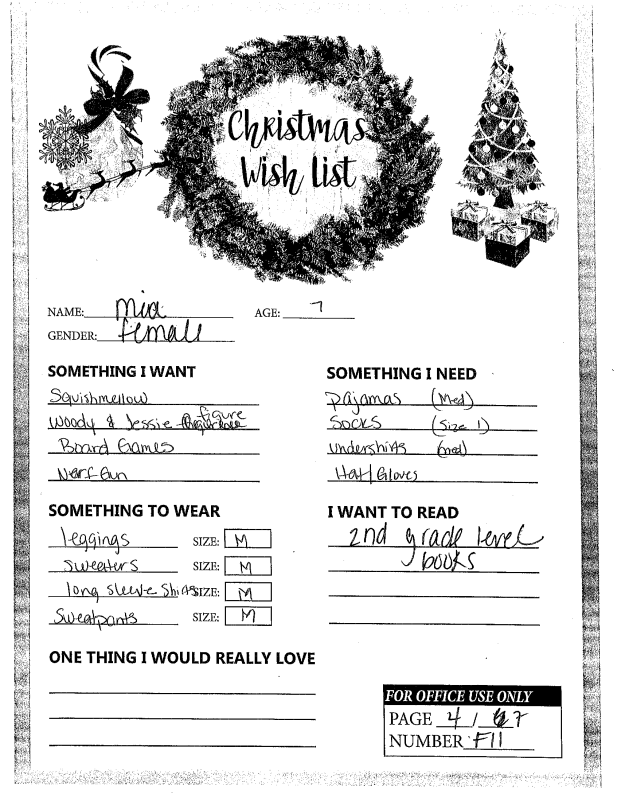 Christmas
Wish List
NAME: Mia AGE: 7
GENDER: female
SOMETHING I WANT
Squishmellow
Woody & Jessie figure
Board Games
Nerf Gun
SOMETHING I NEED
Pajamas (Med)
Socks (Size 1)
Undershirts (med)
Hat/Gloves
SOMETHING TO WEAR
leggings SIZE: M
Sweaters SIZE: M
long sleeve Shirts SIZE: M
Sweatpants SIZE: M
I WANT TO READ
2nd grade level
books
ONE THING I WOULD REALLY LOVE
FOR OFFICE USE ONLY
PAGE 4 / 7
NUMBER F11